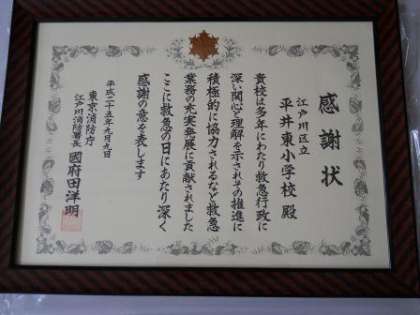 感謝状
江戸川区立
平井東小学校 殿
貴校は多年にわたり救急行政に
深い関心と理解を示されその推進に
積極的に協力されるなど救急
業務の充実発展に貢献されました
ここに救急の日にあたり深く
感謝の意を表します
平成二十五年九月九日
東京消防庁
江戸川消防署長 國府田洋明